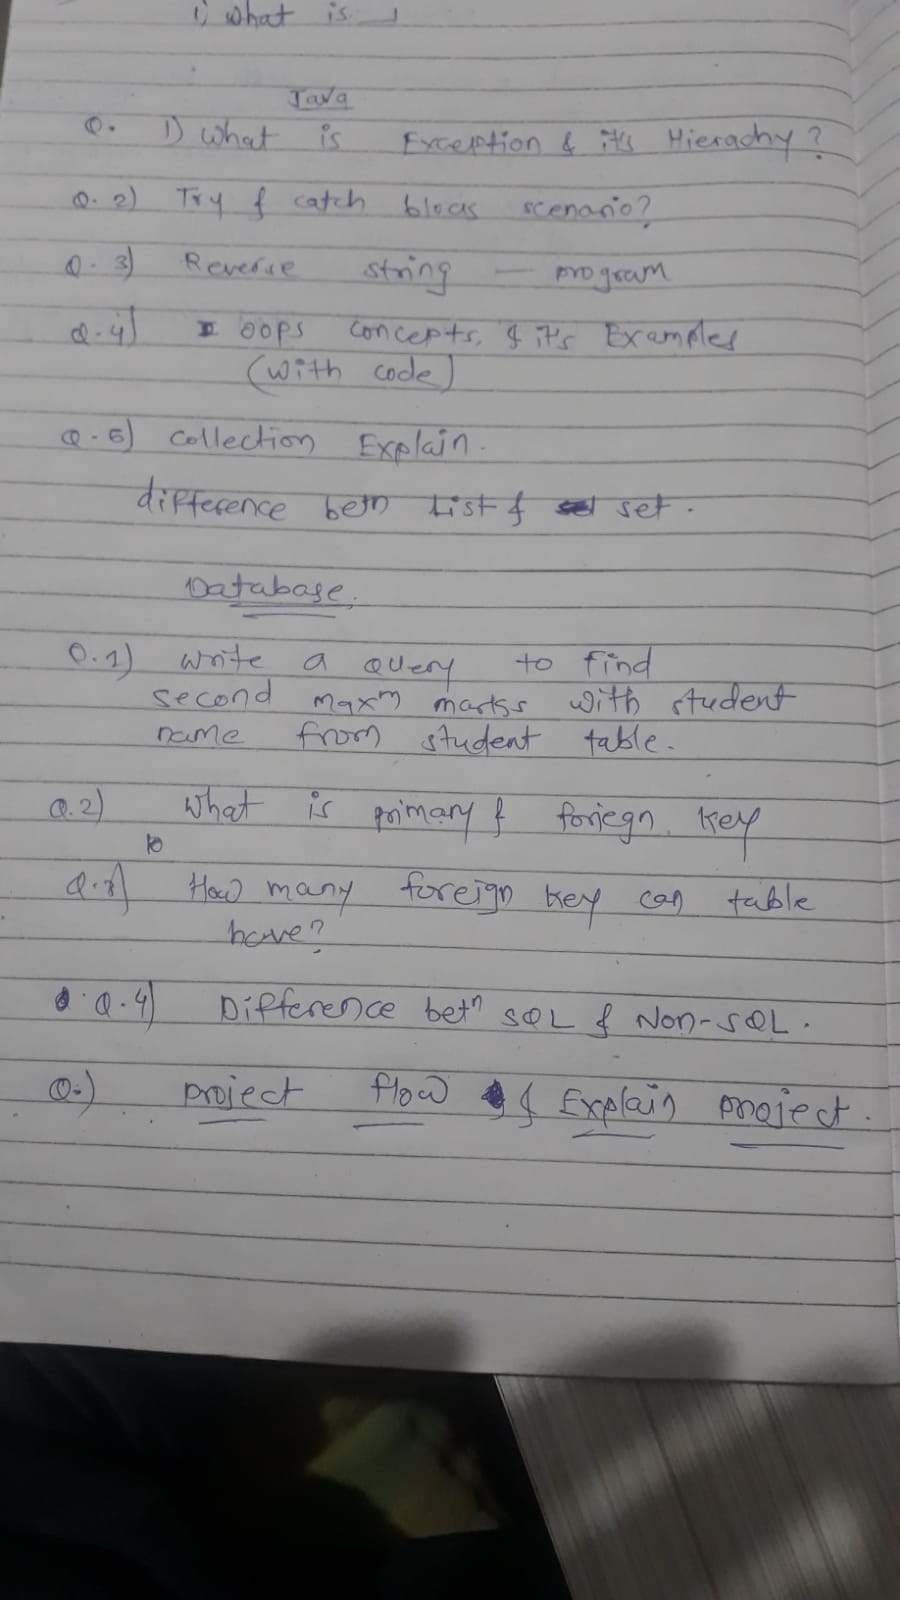 1) What is
Java
Q. 1) What is Exception & it's Hierachy ?
Q. 2) Try & catch blocks scenario?
Q. 3) Reverse string — program
Q. 4) OOPS concepts, & it's Examples
(with code)
Q. 5) collection Explain.
difference betn List & set.
Database.
Q. 1) write a query to find
second maxm marks with student
name from student table.
Q. 2) What is primary & foriegn key
Q. 3) How many foreign key can table
have?
Q. 4) Difference betn SQL & Non-SQL.
Q.) project flow & Explain project.